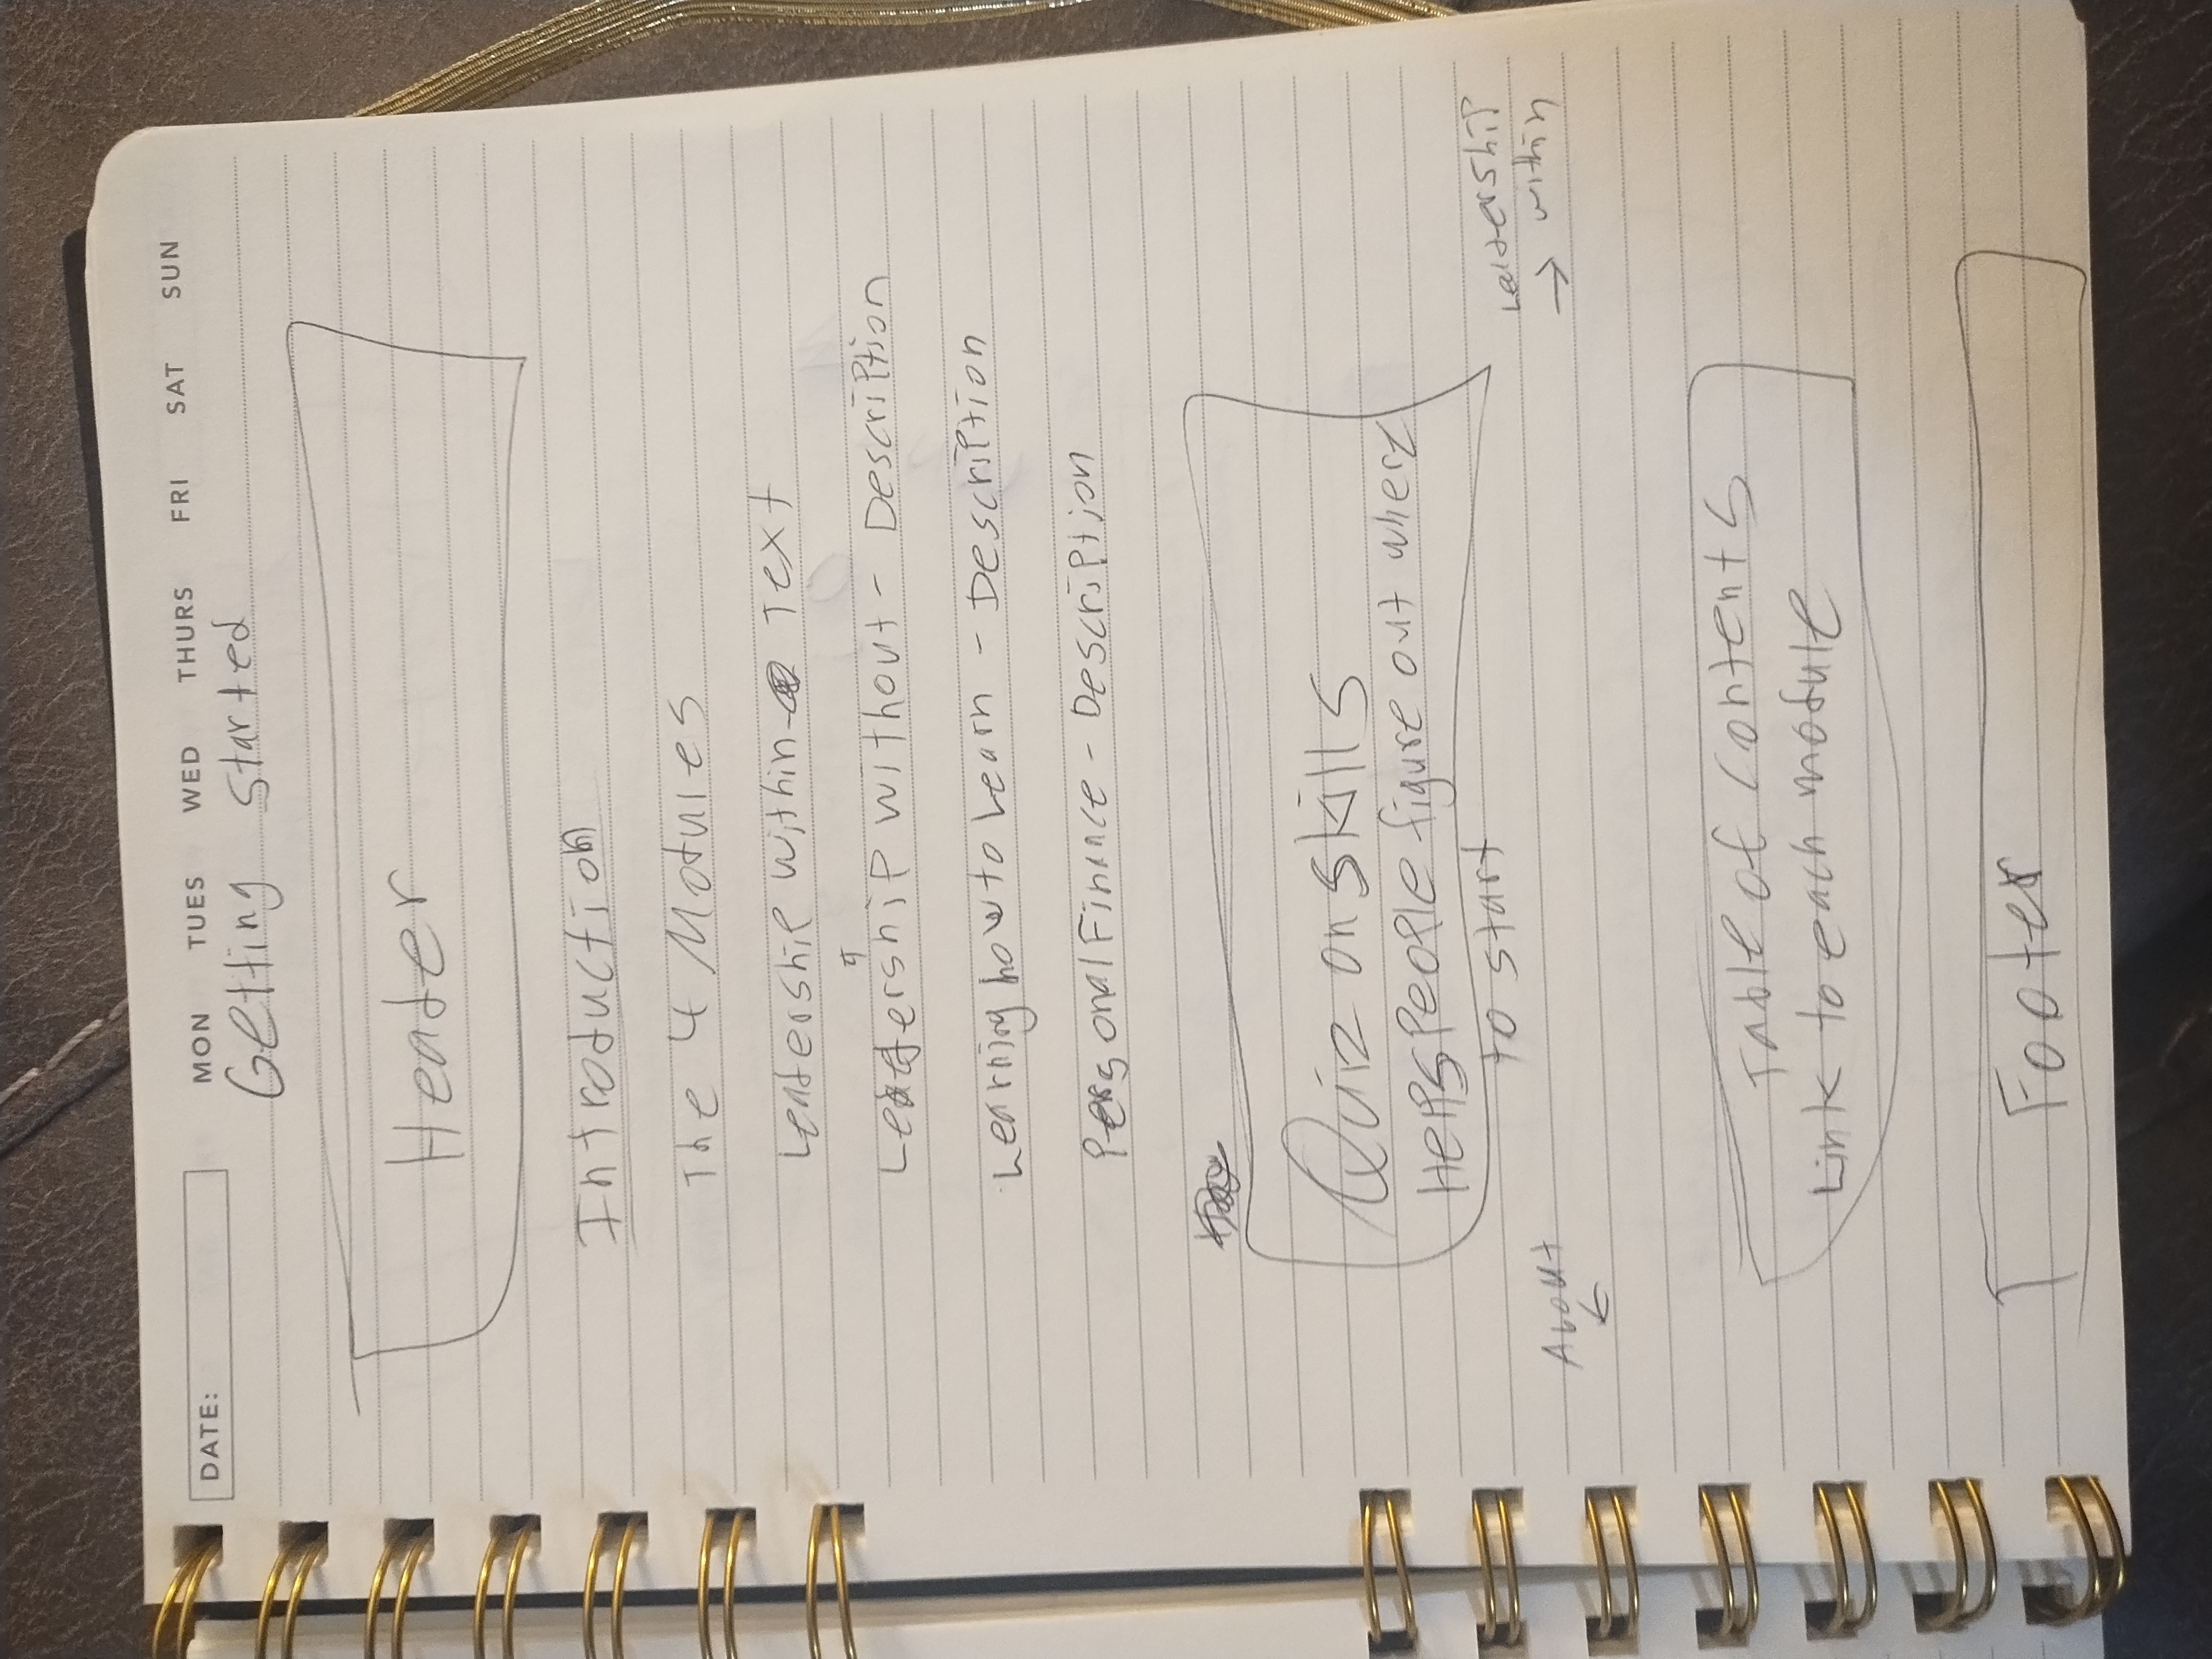 DATE:
MON TUES WED THURS FRI SAT SUN
Getting Started
Header
Introduction
The 4 Modules
Leadership Within - Text
Leadership without - Description
Learning how to Learn - Description
Personal Finance - Description
Quiz on skills
Helps People figure out where
to start
Leadership
→ within
About
←
Table of Contents
Link to each module
Footer